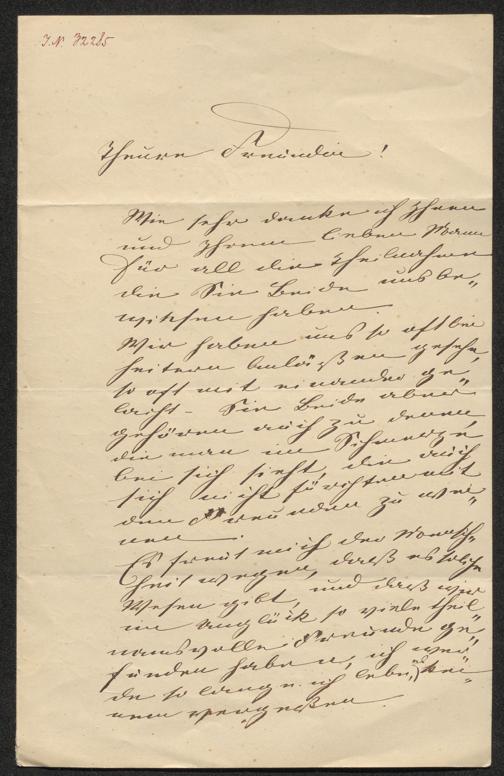 J.N. 32285
Theure Freundin!
Wie sehr danke ich Ihnen
und Ihrem lieben Mann
für all die Theilnahme
die Sie Beide uns be„
wiesen haben.
Wir haben uns so oft bei
heitern Anläßen gesehn,
so oft mit einander ge„
lacht – Sie Beide aber
gehören auch zu denen,
die man im Schmerze
bei sich sieht, die auch
sich nicht fürchten mit
den Freunden zu wei„
nen.
Es freut mich der Mensch„
heit wegen, daß es solche
Wesen gibt, und daß wir
im Unglück so viele theil„
namsvolle Freunde ge„
funden haben, ich wer„
de so lange ich lebe, es kei„
nem vergeßen.